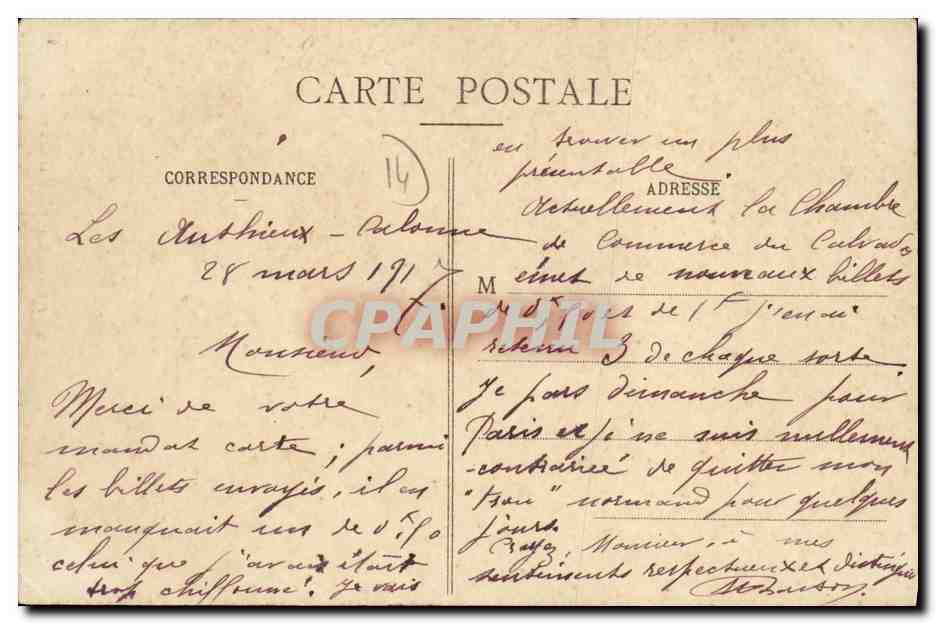 CARTE POSTALE
CORRESPONDANCE
14
Les Authieux - Calonne
28 mars 1917
Monsieur,
Merci de votre
mandat carte ; parmi
les billets envoyés, il en
manquait un de 0f,50
celui que j'avais était
trop chiffonné. Je vais
en trouver un plus
présentable
ADRESSE
Actuellement la Chambre
de Commerce du Calvados
M
émet de nouveaux billets
de 0f,50 et de 1f j'en ai
retenu 3 de chaque sorte
Je pars dimanche pour
Paris et je ne suis nullement
contrariée de quitter mon
"trou" normand pour quelques
jours
Croyez, Monsieur, à mes
sentiments respectueux et distingués
CPAPHIL